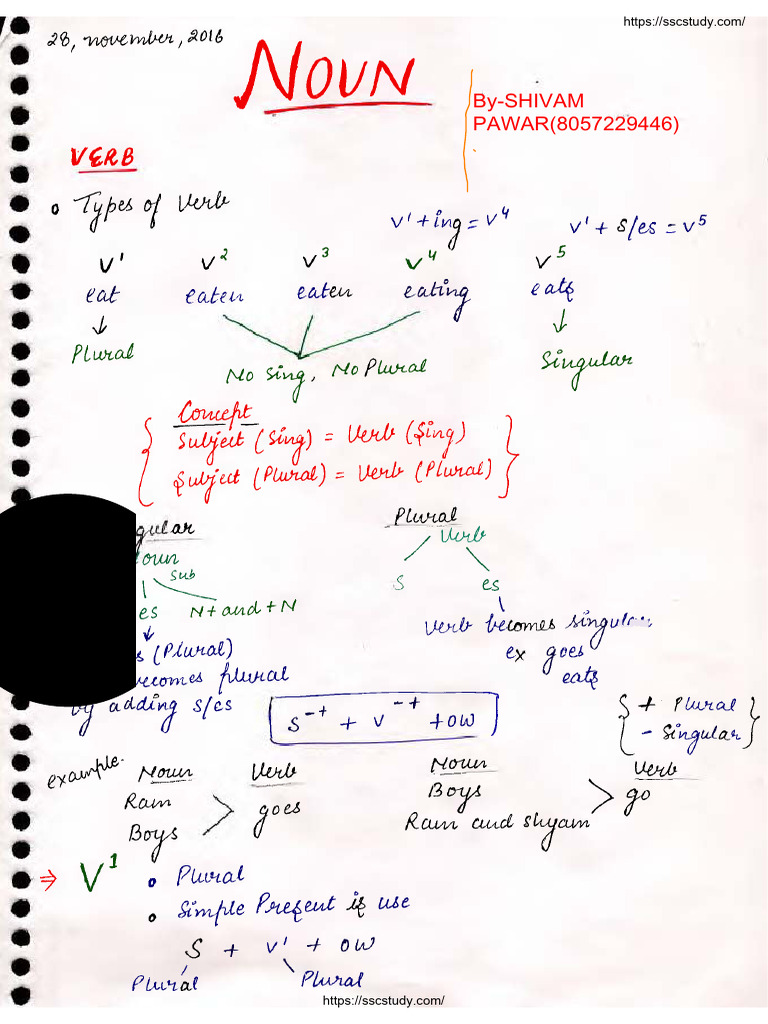 https://sscstudy.com/
28, november, 2016
NOUN
By-SHIVAM
PAWAR(8057229446)
VERB
Types of Verb
V¹+ing = V⁴
V¹ + s/es = V⁵
V¹ V² V³ V⁴ V⁵
eat eaten eaten eating eats
Plural
No Sing, No Plural
Singular
Concept
Subject (Sing) = Verb (Sing)
Subject (Plural) = Verb (Plural)
gular
Plural
oun
Verb
Sub
S es
es N+and+N
s (Plural)
Verb becomes
ecomes plural
ex goes
eats
by adding s/es
S⁻⁺ + V⁻⁺ + OW
+ Plural
- Singular
example.
Noun Verb Noun Verb
Ram goes Boys go
Boys Ram and shyam
⇒ V¹
Plural
Simple Present is use
S + V¹ + OW
Plural Plural
https://sscstudy.com/